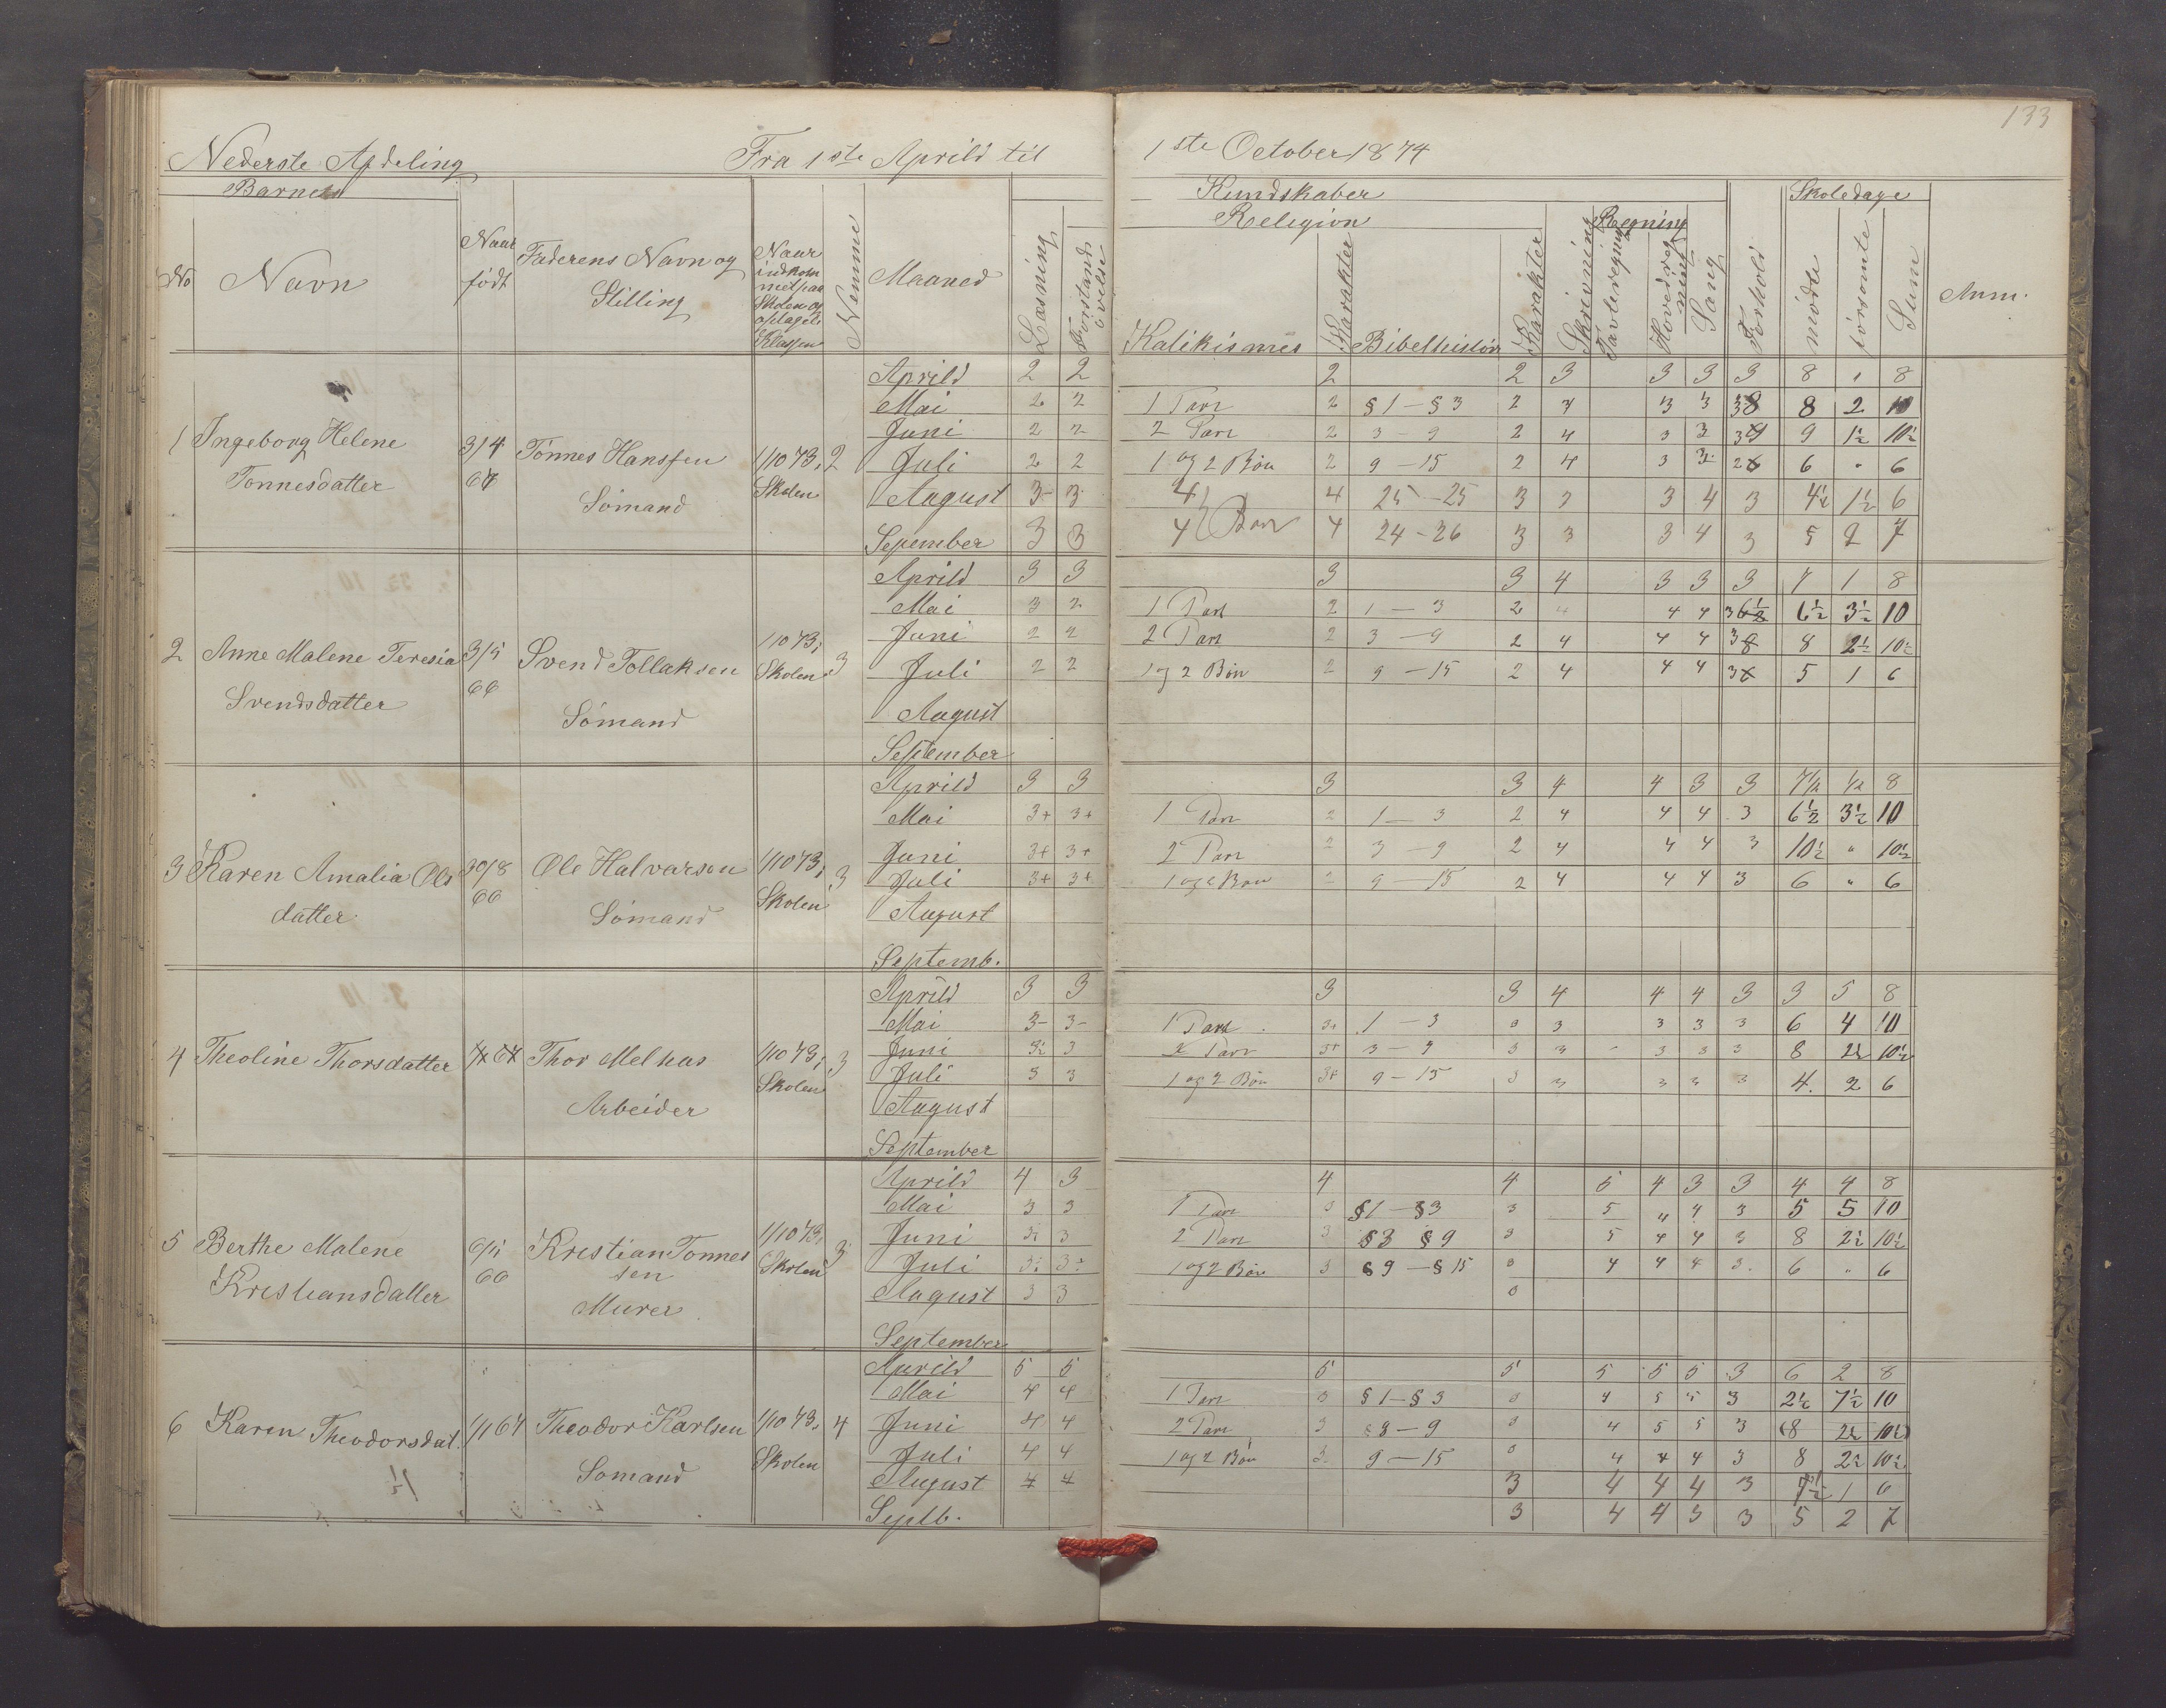 133
Nederste Afdeling Fra 1ste Aprild til 1ste October 1874
Barnets Kundskaber Skoledage
Religion Regning
No Navn Naar født Faderens Navn og Stilling Naar indkommet paa Skolen og optaget i Klassen Nemme Maaned Læsning Forstands øvelse Katikismes Karakter Bibelhistorie Karakter Skrivning Tavleregning Hovedregning Sang Forhold mødte forsømte Sum Anm.
Aprild 2 2 2 2 3 3 3 3 8 " 8
Mai 2 2 1 Part 2 § 1 - § 3 2 3 3 8 2 10
Juni 2 2 2 Part 2 3 - 9 2 4 3 3 9 1½ 10½
1 Ingeborg Helene Tønnesdatter 3/4 67 Tønnes Hanssen Sømand 1/10 73, Skolen 2
Juli 2 2 1 og 2 Bøn 2 9 - 15 2 4 3 3 6 " 6
August 3- 3 4 4 25 - 25 3 3 3 4 3 4½ 1½ 6
September 3 3 4 Bøn 4 24 - 26 3 3 3 4 3 5 2 7
Aprild 3 3 3 3 4 3 3 3 7 1 8
Mai 3 2 1 Part 2 1 - 3 2 4 4 4 3 6½ 3½ 10
Juni 2 2 2 Part 2 3 - 9 2 4 4 4 3 8 2½ 10½
2 Anne Malene Teresia Svendsdatter 3/5 66 Svend Tollaksen Sømand 1/10 73, Skolen 3
Juli 2 2 1 og 2 Bøn 2 9 - 15 2 4 4 4 3 5 1 6
August
September
Aprild 3 3 3 3 4 4 3 3 7½ ½ 8
Mai 3+ 3+ 1 Part 2 1 - 3 2 4 4 4 3 6½ 3½ 10
Juni 3+ 3+ 2 Part 2 3 - 9 2 4 4 4 3 10½ " 10½
3 Karen Amalia Ols datter 30/8 66 Ole Halvarsen Sømand 1/10 73, Skolen 3
Juli 3+ 3+ 1 og 2 Bøn 2 9 - 15 2 4 4 4 3 6 " 6
August
Septemb.
Aprild 3 3 3 3 4 4 4 3 3 5 8
Mai 3- 3- 1 Part 3+ 1 - 3 3 3 3 3 3 6 4 10
4 Theoline Thorsdatter Thor Melhus Arbeider 1/10 73, Skolen 3
Juni 3 2 Part 3+ 3 - 9 3 3 3 3 3 8 2½ 10½
Juli 3 3 1 og 2 Bøn 3+ 9 - 15 3 3 3 3 3 4 2 6
August
September
Aprild 4 3 4 4 5 4 3 3 4 4 8
Mai 3 3 1 Part 3 § 1 - § 3 3 5 4 4 3 5 5 10
5 Berthe Malene Kristiansdatter 66 Kristian Tønnes sen Murer 1/10 73, Skolen 3
Juni 3 2 Part 3 § 3 § 9 3 5 4 4 3 8 2½ 10½
Juli 1 og 2 Bøn 3 § 9 - § 15 3 4 4 4 3 6 " 6
August 3 3 3
September
Aprild 5 5 5 5 5 5 5 3 6 2 8
Mai 4 4 1 Part 3 § 1 - § 3 3 4 5 5 3 2½ 7½ 10
6 Karen Theodorsdat. 1/1 67 Theodor Karlsen Sømand 1/10 73, Skolen 4
Juni 4 4 2 Part 3 § 3 - 9 3 4 5 5 3 8 2½ 10½
Juli 4 4 1 og 2 Bøn 3 9 - 15 3 4 4 4 3 8 2½ 10½
August 4 4 3 4 4 4 3 1 6
Septb. 3 4 4 3 3 5 2 7